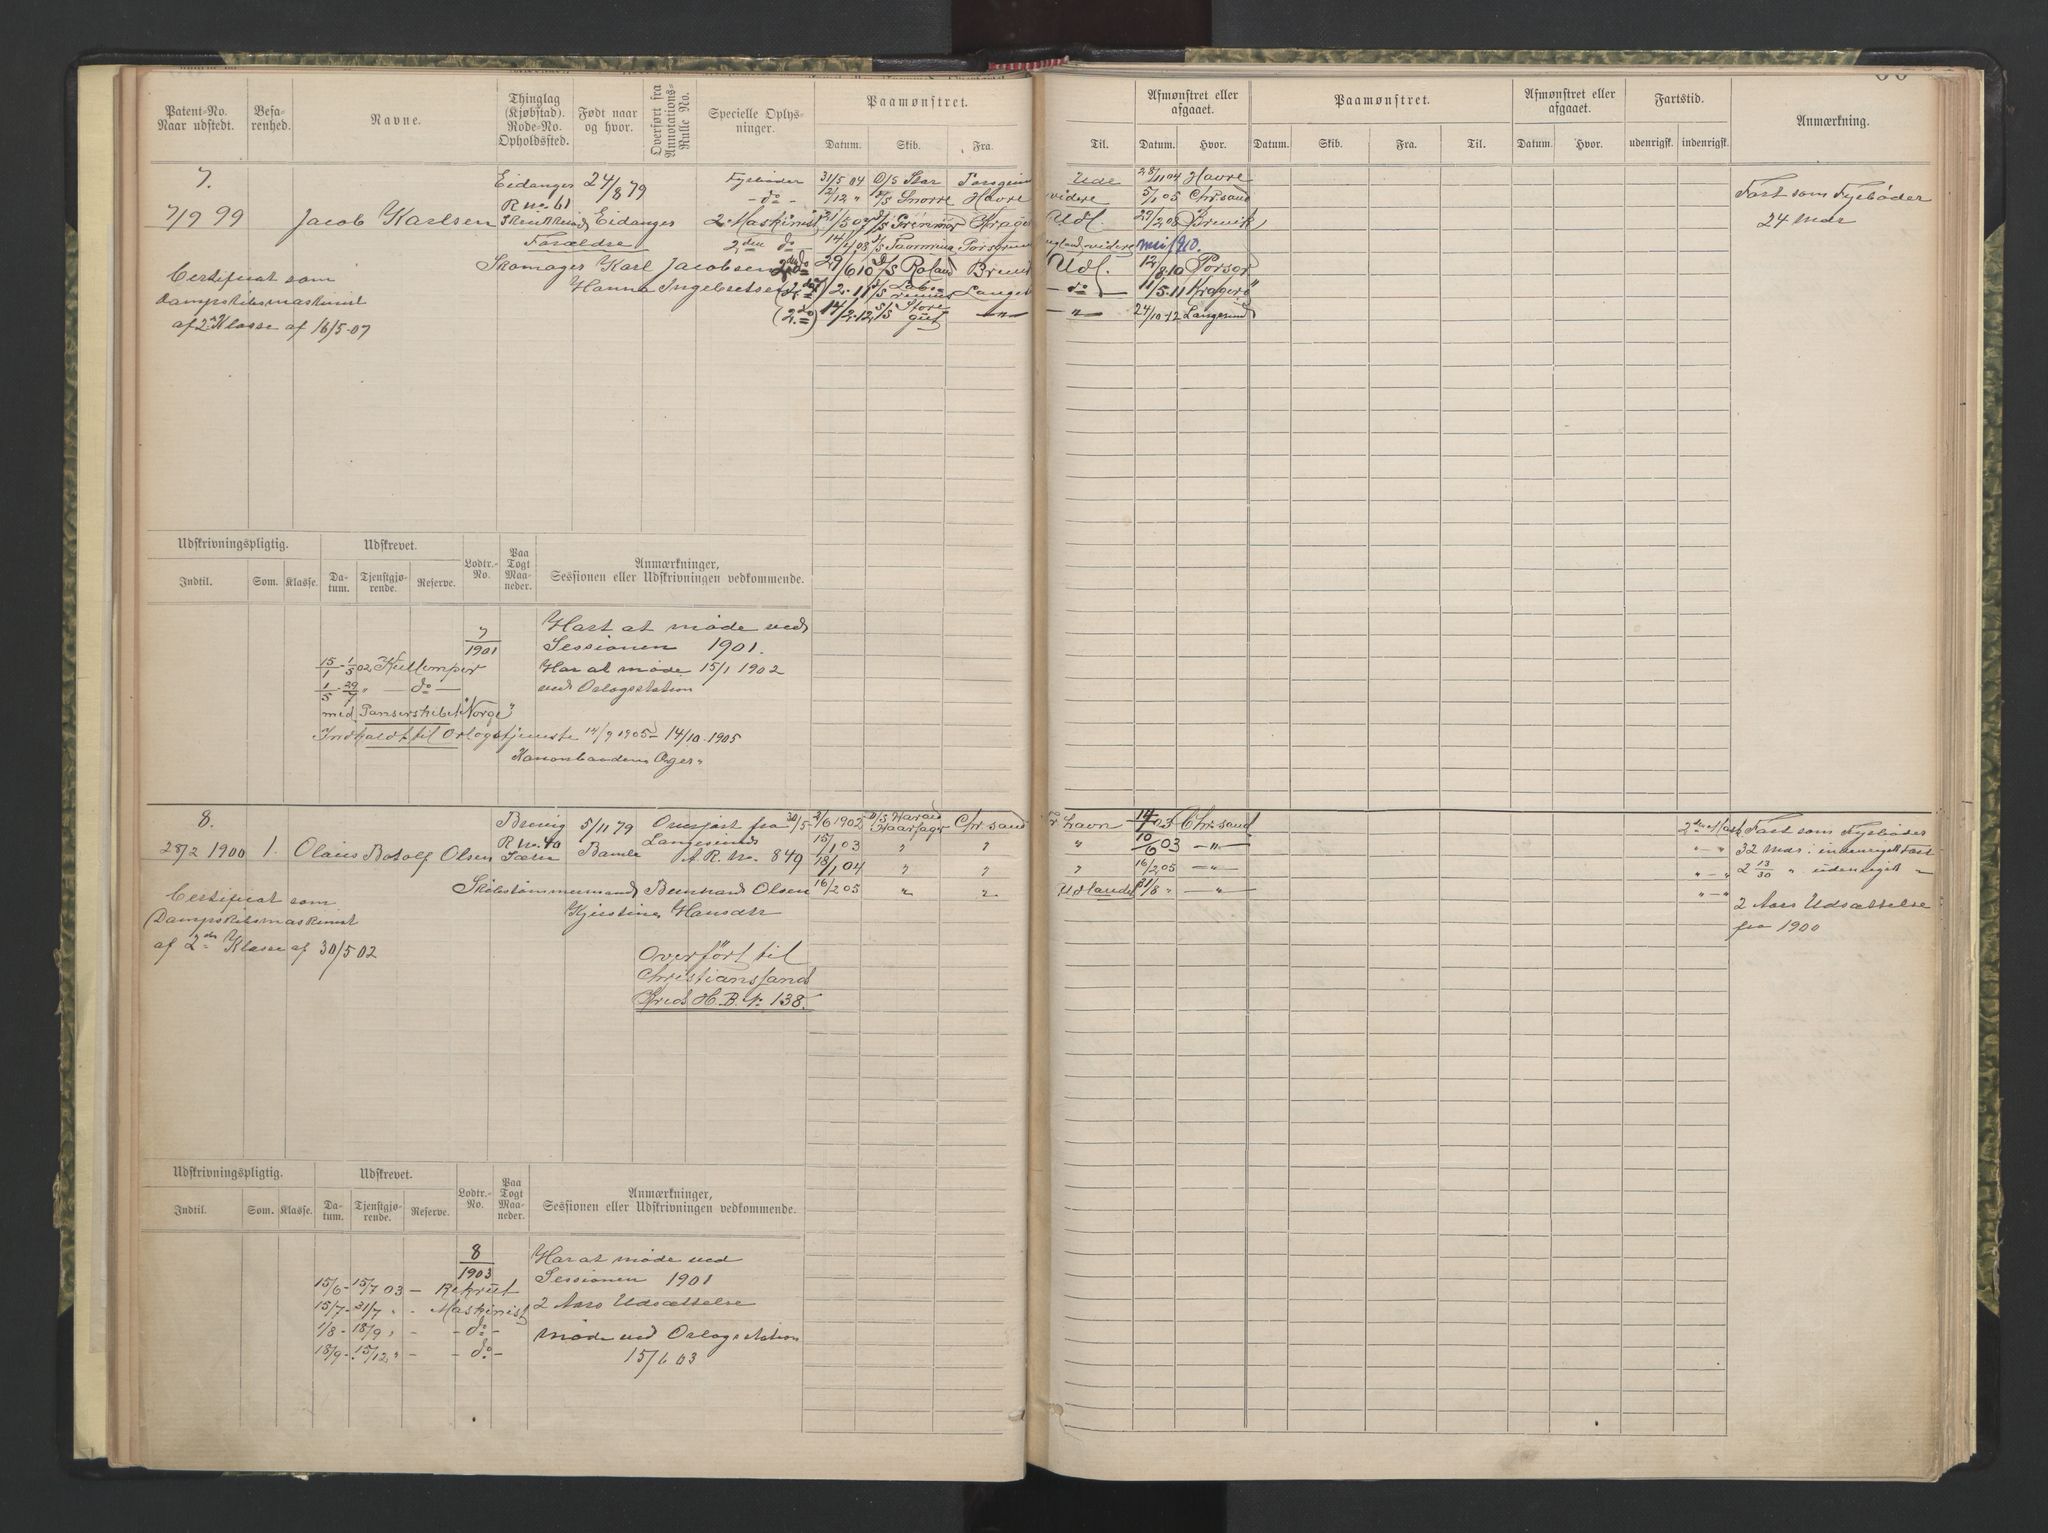 Patent-No. Naar udstedt.
Befarenhed.
Navne.
Thinglag (Kjøbstad). Rode-No. Opholdssted.
Født naar og hvor.
Overført fra Annotations-Rulle No.
Specielle Oplysninger.
Paamønstret.
Datum. Skib. Fra.
Til.
Afmønstret eller afgaaet.
Datum. Hvor.
Paamønstret.
Datum. Skib. Fra. Til.
Afmønstret eller afgaaet.
Datum. Hvor.
Fartstid.
udenrigsk. indenrigsk.
Anmærkning.
7. Eidanger 24/8 79 Fyrbøder 31/5 04 D/S Star Porsgrund Ude 28/11 04 Havre
R no. 61 -do- 2/12 " D/S Snorre Havre videre 5/1 05 Chr.sand Fart som Fyrbøder
7/9 99 Jacob Karlsen Eidanger 2. Maskinist 21/5 07 D/S Grönmor Kragerø Udl. 29/2 08 Brevik 24 Mdr
Forældre 2den do 14/4 08 D/S Taormina Porsgrund England videre mai 1910.
Skomager Karl Jacobsen 2den do 29/6 10 D/S Roland Brevik Udl. 12/8 10 Porsgr
Certificat som
Hanna Ingebretsen 2-11 D/S Langes — do — 11/5-11 Kragerö
Dampskibsmaskinist
(2. do) 14/2-12 S/S Storegut — " — — " — 24/10-12 Langesund
af 2. Klasse af 16/5-07
Udskrivningspligtig. Udskrevet. Lodtr.-No. Paa Togt Maaneder. Anmærkninger, Sessionen eller Udskrivningen vedkommende.
Indtil. Som. Klasse. Datum. Tjenstgjørende. Reserve.
7/1901 Hart at møde ved
Sessionen 1901.
15/1-1/5 02 Kullemper Har at møde 15/1 1902
1/5-29/7 " — do — ved Orlogsstation
med Panserskibet "Norge"
Indkaldt til Orlogstjeneste 14/9 1905 - 14/10-1905
Kanonbaaden Æger"
8. Brevig 5/11 79 Overført fra 30/5- 2/6 1902 D/S Harald Haarfager Chr.sand Fr.havn 14/1 03 Chr.sand 2den Mask Fart som Fyrbøder
28/2 1900 1. Olaus Botolf Olsen R no. 40 Bamle Langesunds A.R. no. 849 15/1 03 " " " 10/6 03 — " — " — " 32 Mdr. indenrigsk Fart
18/1 04 " " " 16/2 05 — " — " — " 2 13/30 " udenrigsk "
Certificat som Skibstømmermand Bernhard Olsen 16/2 05 " " Udlandet 31/8 " — " — " — "
Dampskibsmaskinist Kjerstine Hansdtr 2 Aars Udsættelse
af 2den Klasse af 30/5 02 fra 1900
Overført til
Christianssand
Kreds H.B. No 138.
Udskrivningspligtig. Udskrevet. Lodtr.-No. Paa Togt Maaneder. Anmærkninger, Sessionen eller Udskrivningen vedkommende.
Indtil. Som. Klasse. Datum. Tjenstgjørende. Reserve.
8/1903 Har at møde ved
15/6-15/7 03 — Rekrut Sessionen 1901
15/7-31/7 " - Maskinist 2 Aars Udsættelse
1/8-18/9 " - - do - møde ved Orlogsstation
18/9-15/12 " — - do - 15/6 03